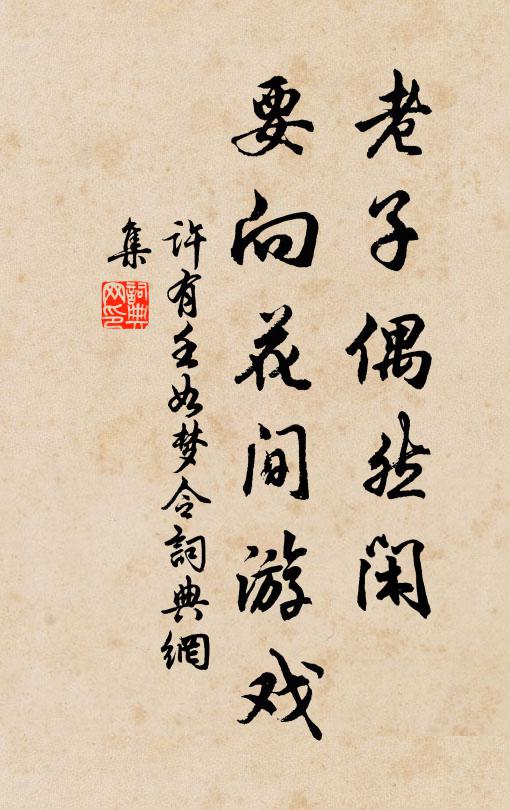 老子偶然闲
要向花间游戏
许有壬如梦令詞典網
集
詞典网印